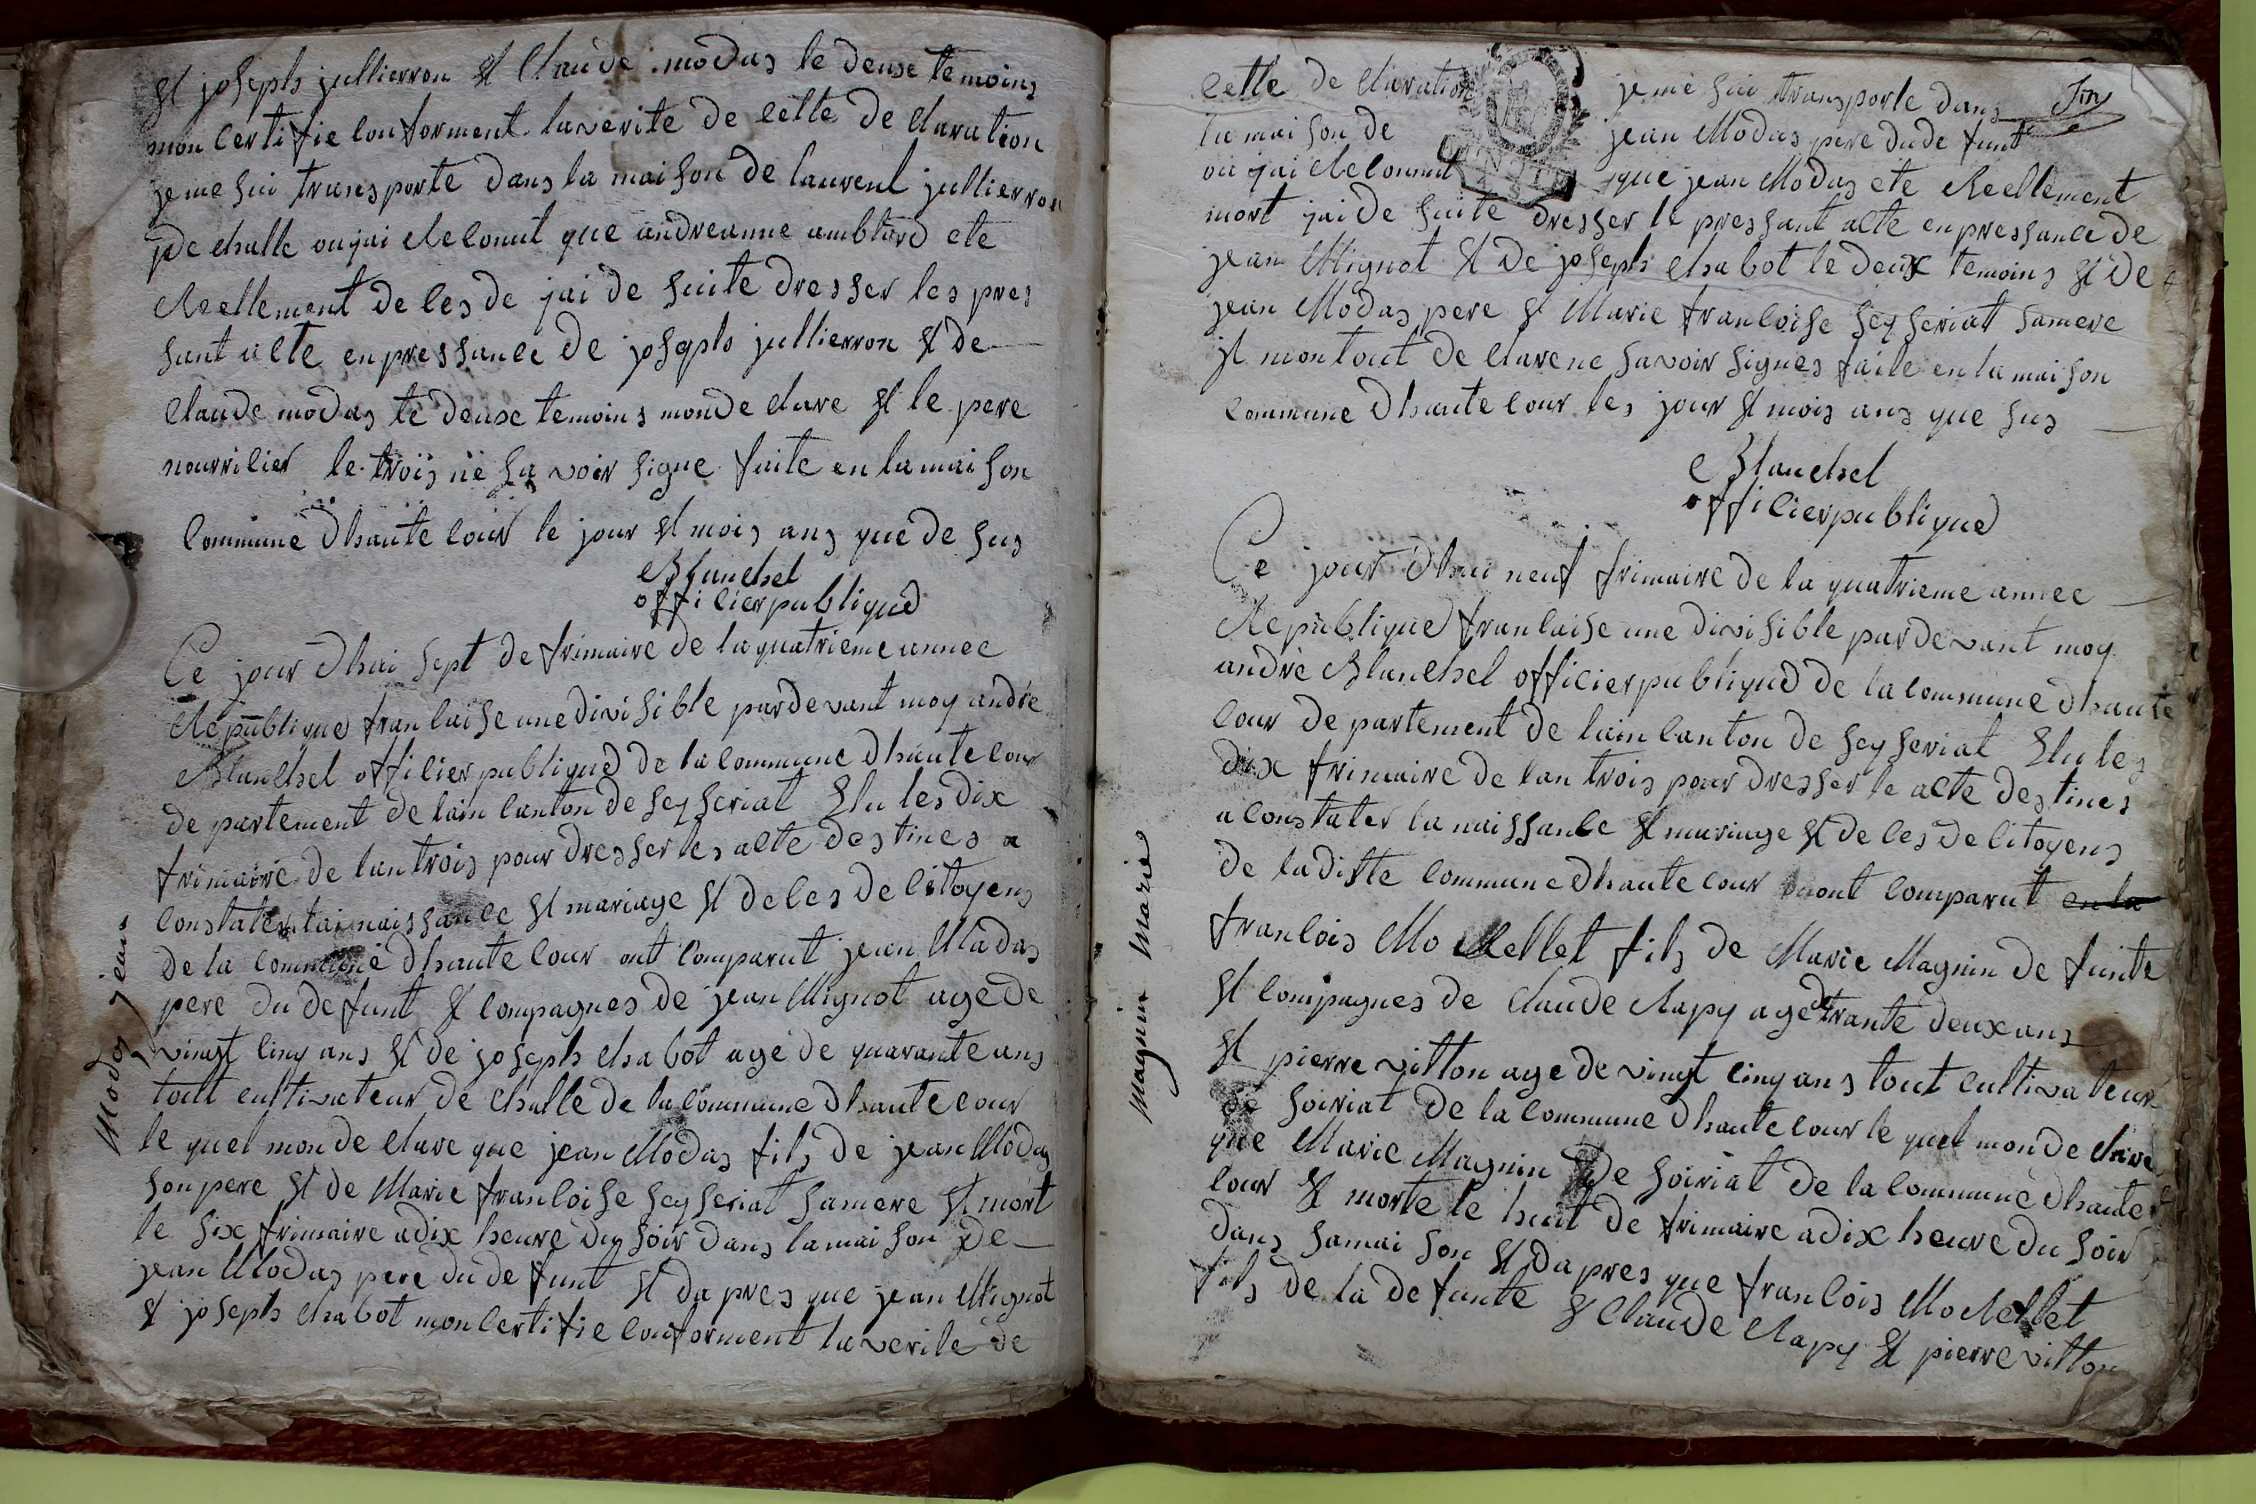 et joseph jullierron et Claude modas le deuxe temoins
mon Certifie conforment la verite de cette de claration
je me sui transporte dans la maison de laurent jullierron
de challe ou jai Reconnut que andreanne amblard ete
Reellement de ces de jai de suite dresser les pres
sant acte en pressance de joseph jullierron et de
Claude modas te deuxe temoins monde clare et le pere
nourricier le trois ne sa voir signe faite en la maison
Commune dhaute cour le jour et mois ans que de sus
Blanchel
officier publique
Ce jour dhui sept de frimaire de la quatrieme annee
Republique francaise une divisible pardevant moy andre
Blanchel officier publique de la commune dhaute cour
de partement de lain canton de seyseriat Elu les dix
frimaire de lan trois pour dresser les acte destines a
constater lai naissance et mariage et de ces de citoyens
de la commune dhaute cour ont comparut jean Modas
pere du defunt et compagnes de jean Mignot age de
vingt cinq ans et de joseph chabot age de quarante ans
tout cultivateur de challe de la commune dhaute cour
le quel mon de clare que jean Modas fils de jean Modas
son pere et de Marie francoise seyseriat sa mere et mort
le six frimaire a dix heure du soir dans la maison de
jean Modas pere du de funt et da pres que jean Mignot
et joseph chabot mon certifie conforment la verite de
Modas jean
cette de claration je me sui transporte dans
la maison de jean Modas pere du de funt
ou jai Reconnut que jean Modas ete Reellement
mort jai de suite dresser le pressant acte en pressance de
jean Mignot et de joseph chabot le deux temoins et de
jean Modas pere et Marie francoise seyseriat sa mere
et mon tout de clare ne savoir signes faite en la maison
commune dhaute cour les jour et mois ans que sus
Blanchel
officier publique
Ce jour dhui neuf frimaire de la quatrieme annee
Republique francaise une divisible par devant moy
andre Blanchel officier publique de la commune dhaute
cour de partement de lain canton de seyseriat Elu les
dix frimaire de lan trois pour dresser le acte destines
a constater la naissance et mariage et de ces de citoyens
de la ditte commune dhaute cour mont comparut en la
francois Mo Rellet fils de Marie Magnin de funte
et compagnes de claude Rapy age de trante deux ans
et pierre vitton age de vingt cinq ans tout cultivateur
de soiriat de la commune dhaute cour le quel mon de clare
que Marie Magnin de soiriat de la commune dhaute
cour et morte le huit de frimaire a dix heure du soir
dans sa maison et da pres que francois Mo Rellet
fils de la de funte et Claude Rapy et pierre vitton
Magnin Marie